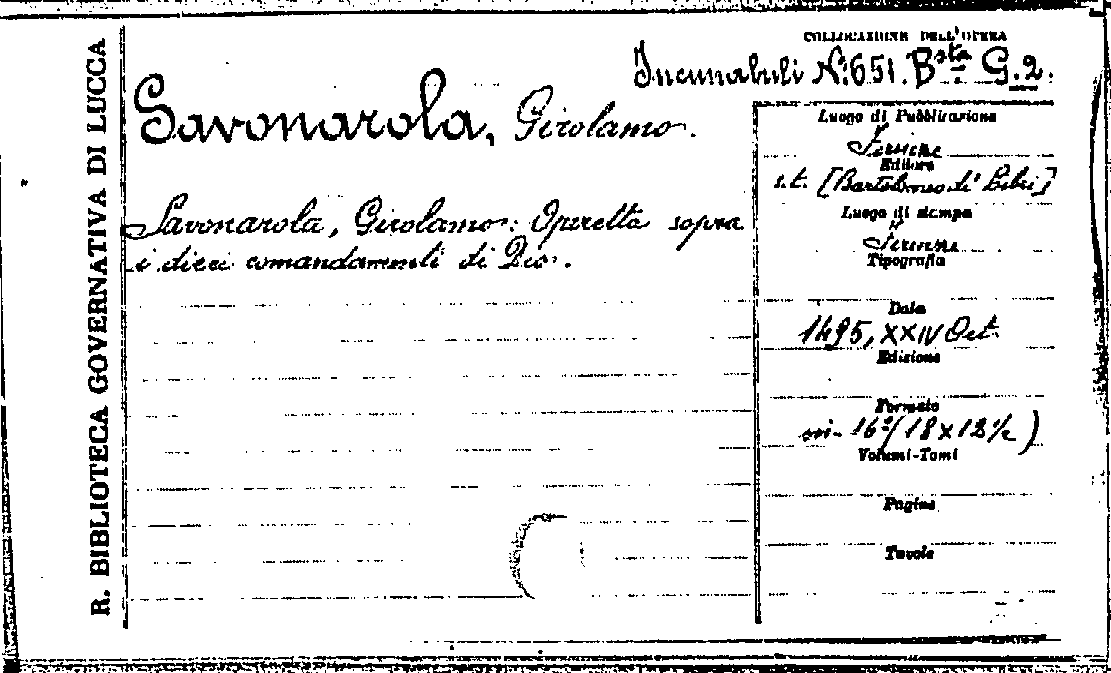 R. BIBLIOTECA GOVERNATIVA DI LUCCA
COLLOCAZIONE DELL'OPERA
Incunabuli N. 651. Bsta G.2.
Savonarola, Girolamo.
Savonarola, Girolamo: Operetta sopra
i dieci comandamenti di Dio.
Luogo di Pubblicazione
Firenze
Editore
s.t. [Bartolomeo di Libri]
Luogo di stampa
Firenze
Tipografia
Data
1495, XXIV Oct.
Edizione
Formato
in-16º (18 x 12 ½)
Volumi-Tomi
Pagine
Tavole